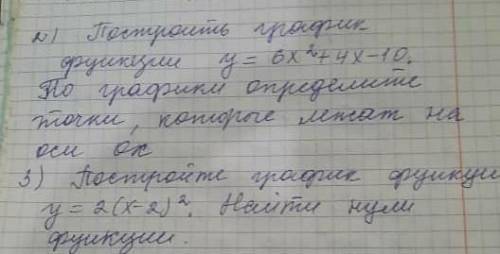 2) Построить график
функции y = 6x²+4x-10.
По графики определите
точки, которые лежат на
оси ох
3) Постройте график функци
y = 2(x-2)². Найти нули
функции.